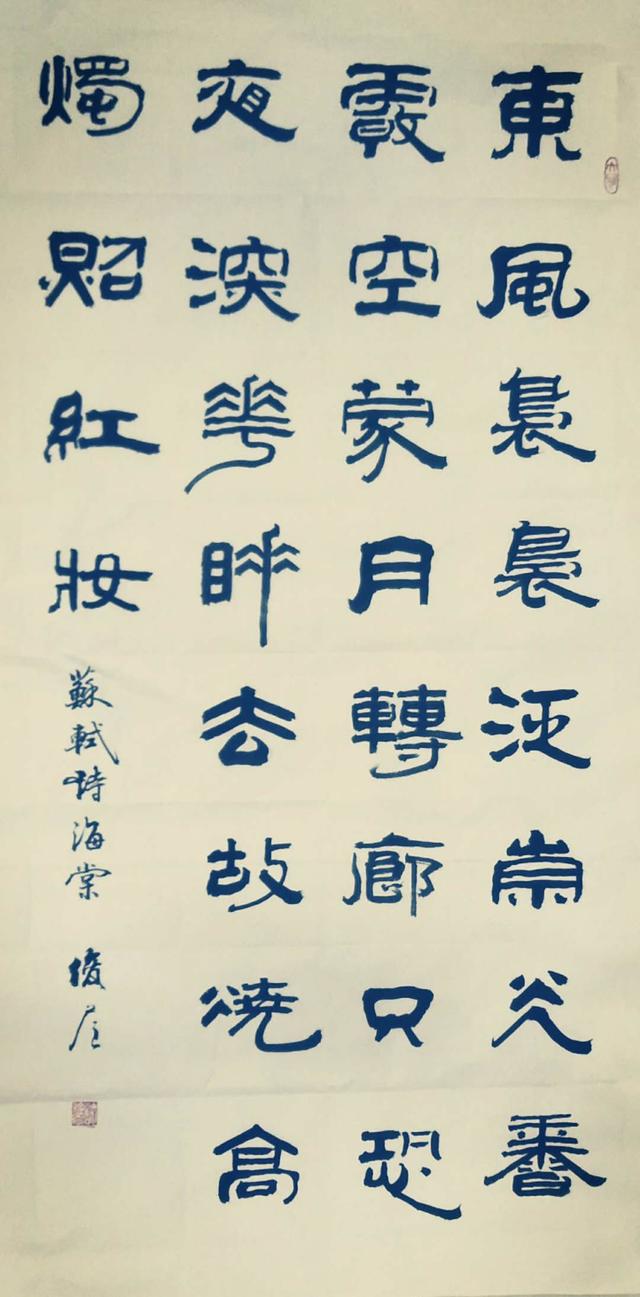 東風裊裊泛崇光香
霧空蒙月轉廊只恐
夜深花睡去故燒高
燭照紅妝
蘇軾詩海棠